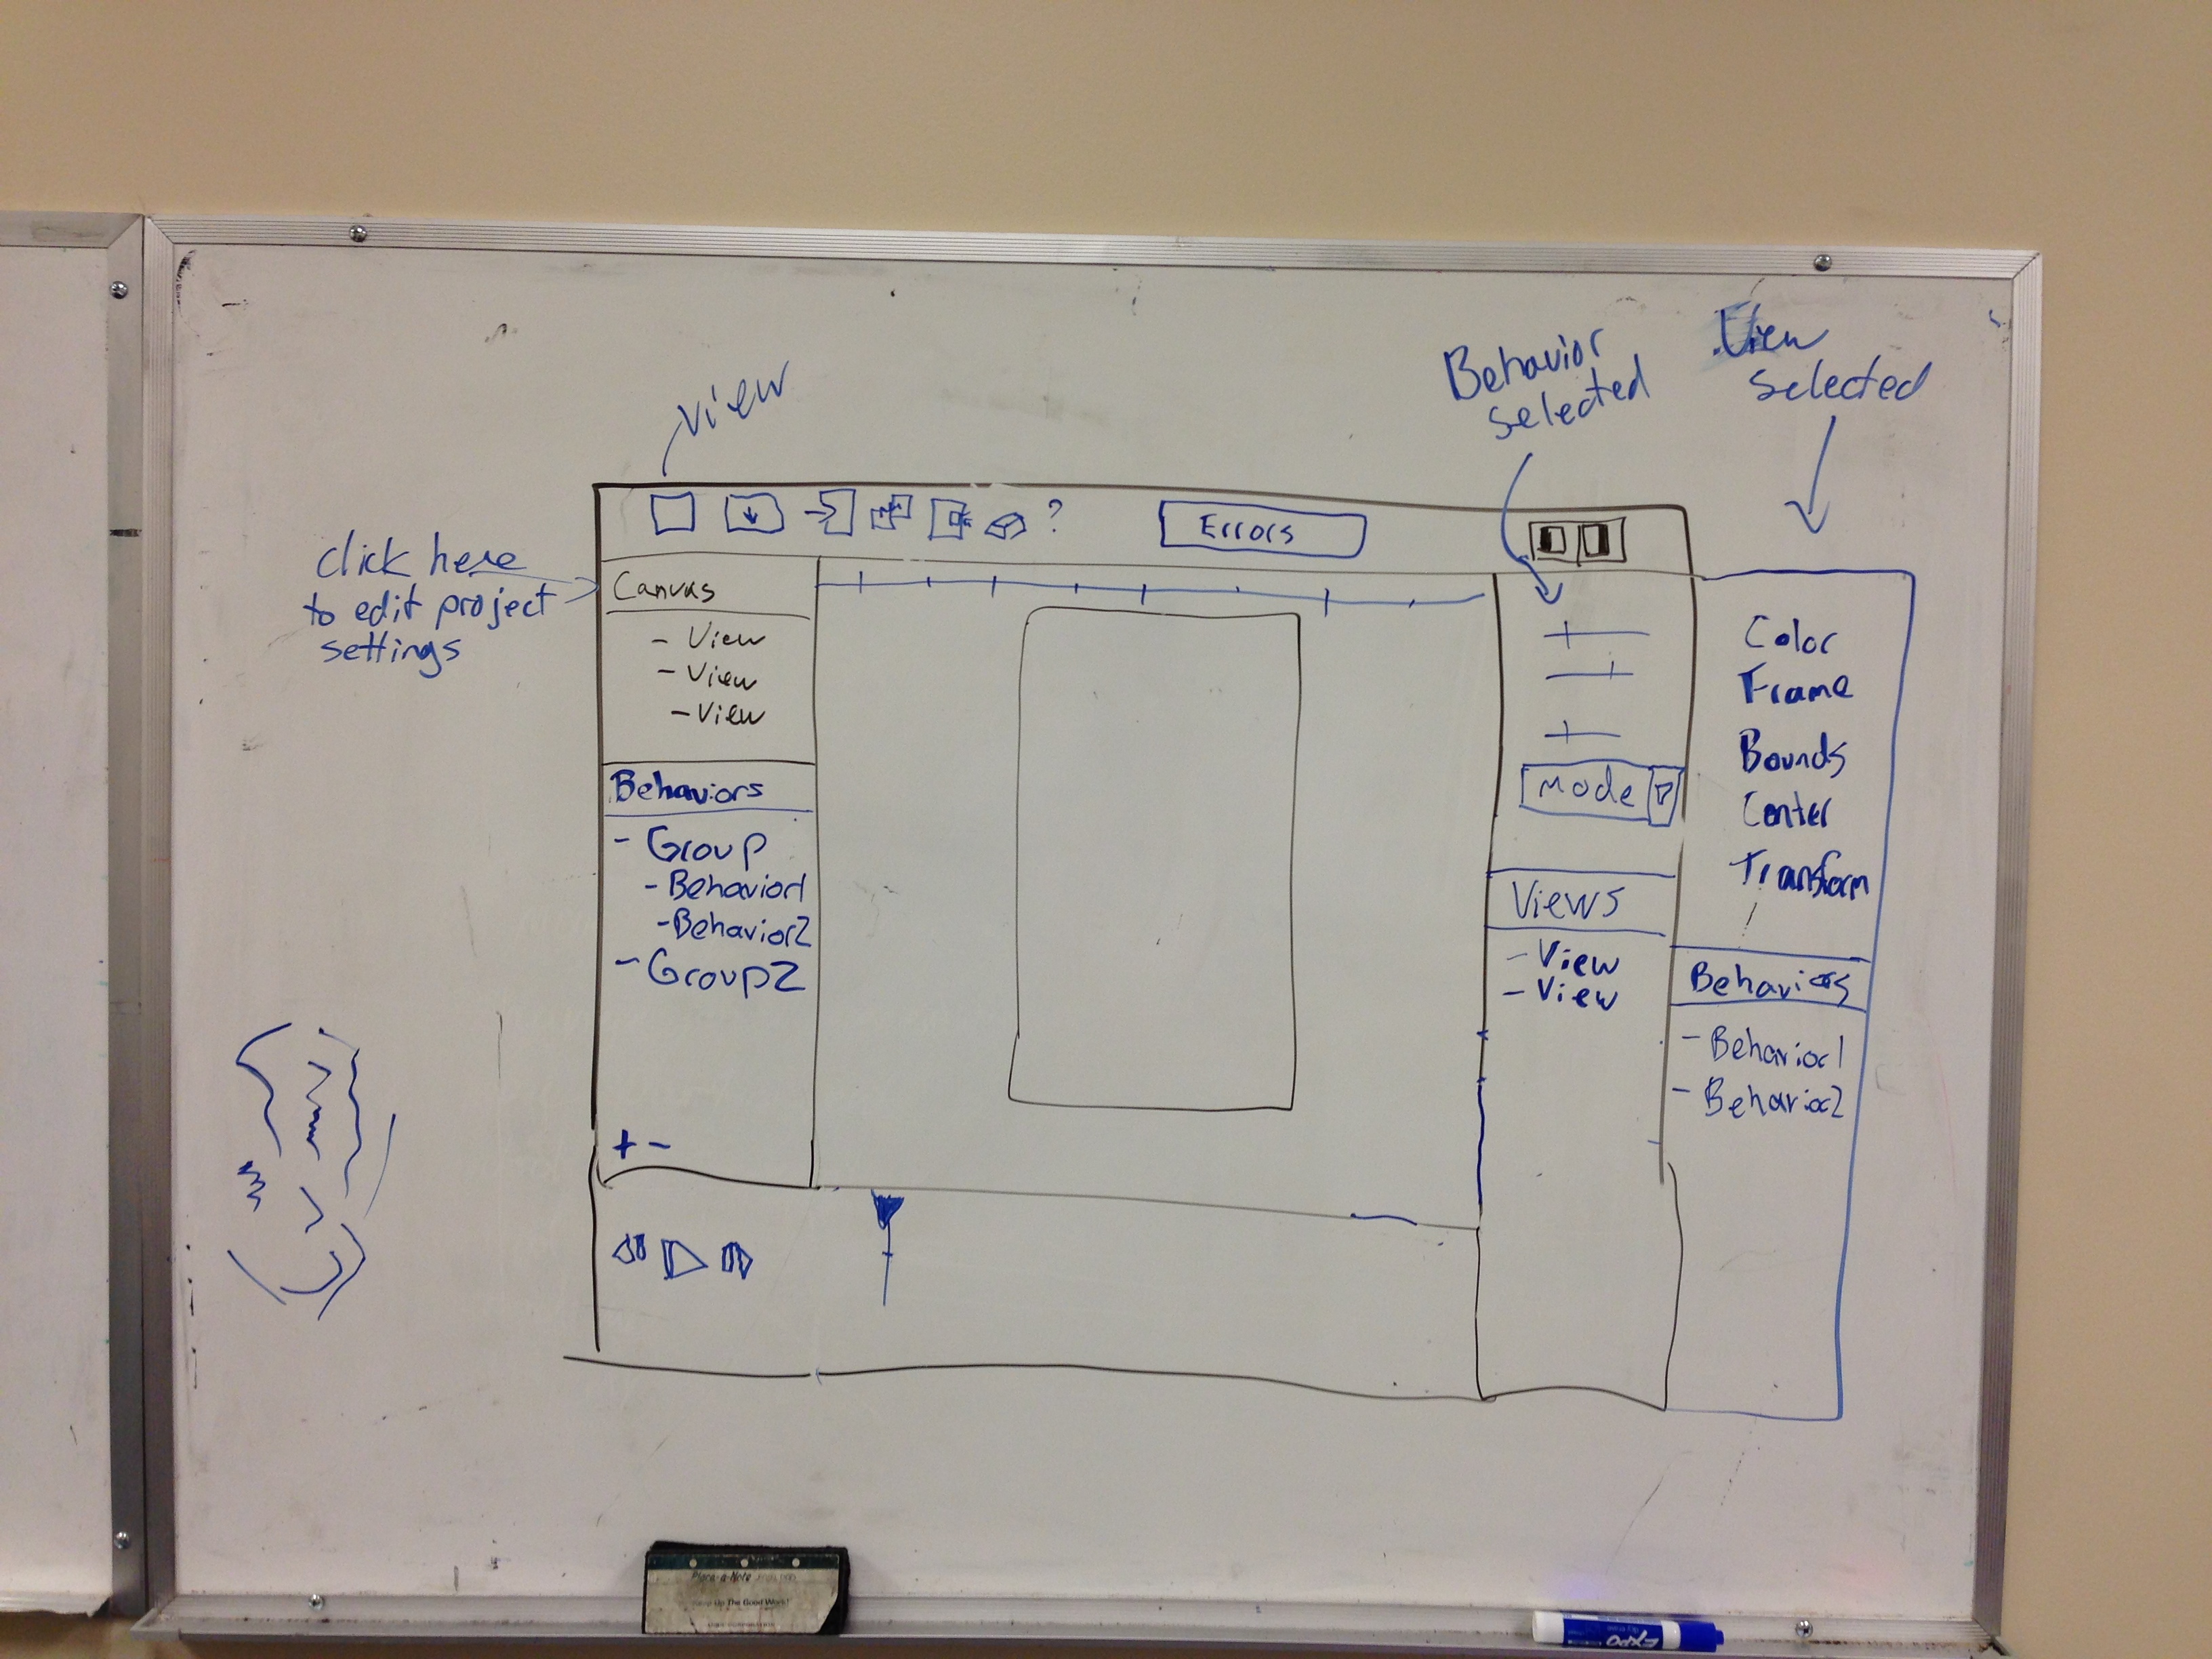 View
Behavior
selected
View
selected
?
Errors
click here
to edit project
settings
Canvas
- View
- View
- View
Behaviors
- Group
- Behavior1
- Behavior2
- Group2
+ -
Mode
Views
- View
- View
Color
Frame
Bounds
Center
Transform
Behaviors
- Behavior1
- Behavior2
Keep Up The Good Work!
EXPO